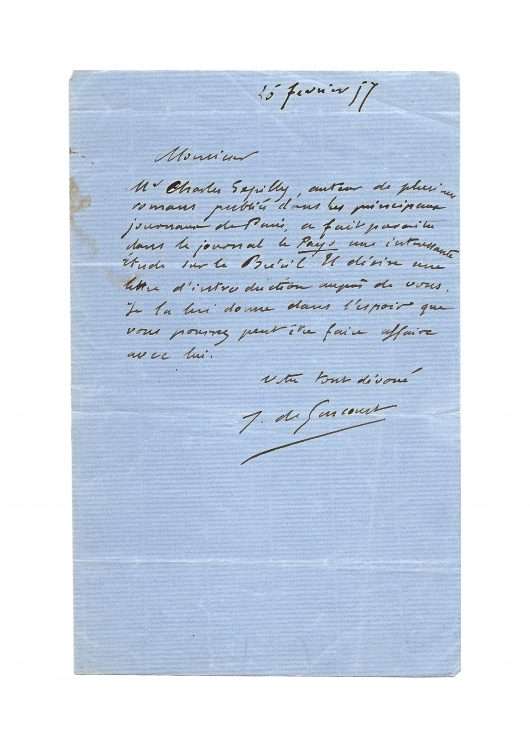 25 février 57
Monsieur
Mr Charles , auteur de plusieurs
romans publiés dans les principaux
journaux de Paris, a fait paraitre
dans le journal le Pays une intéressante
étude sur le Brésil. Il désire une
lettre d'introduction auprès de vous.
Je la lui donne dans l'espoir que
vous pourrez peut être faire affaire
avec lui.
votre tout dévoué
J. de Goncourt